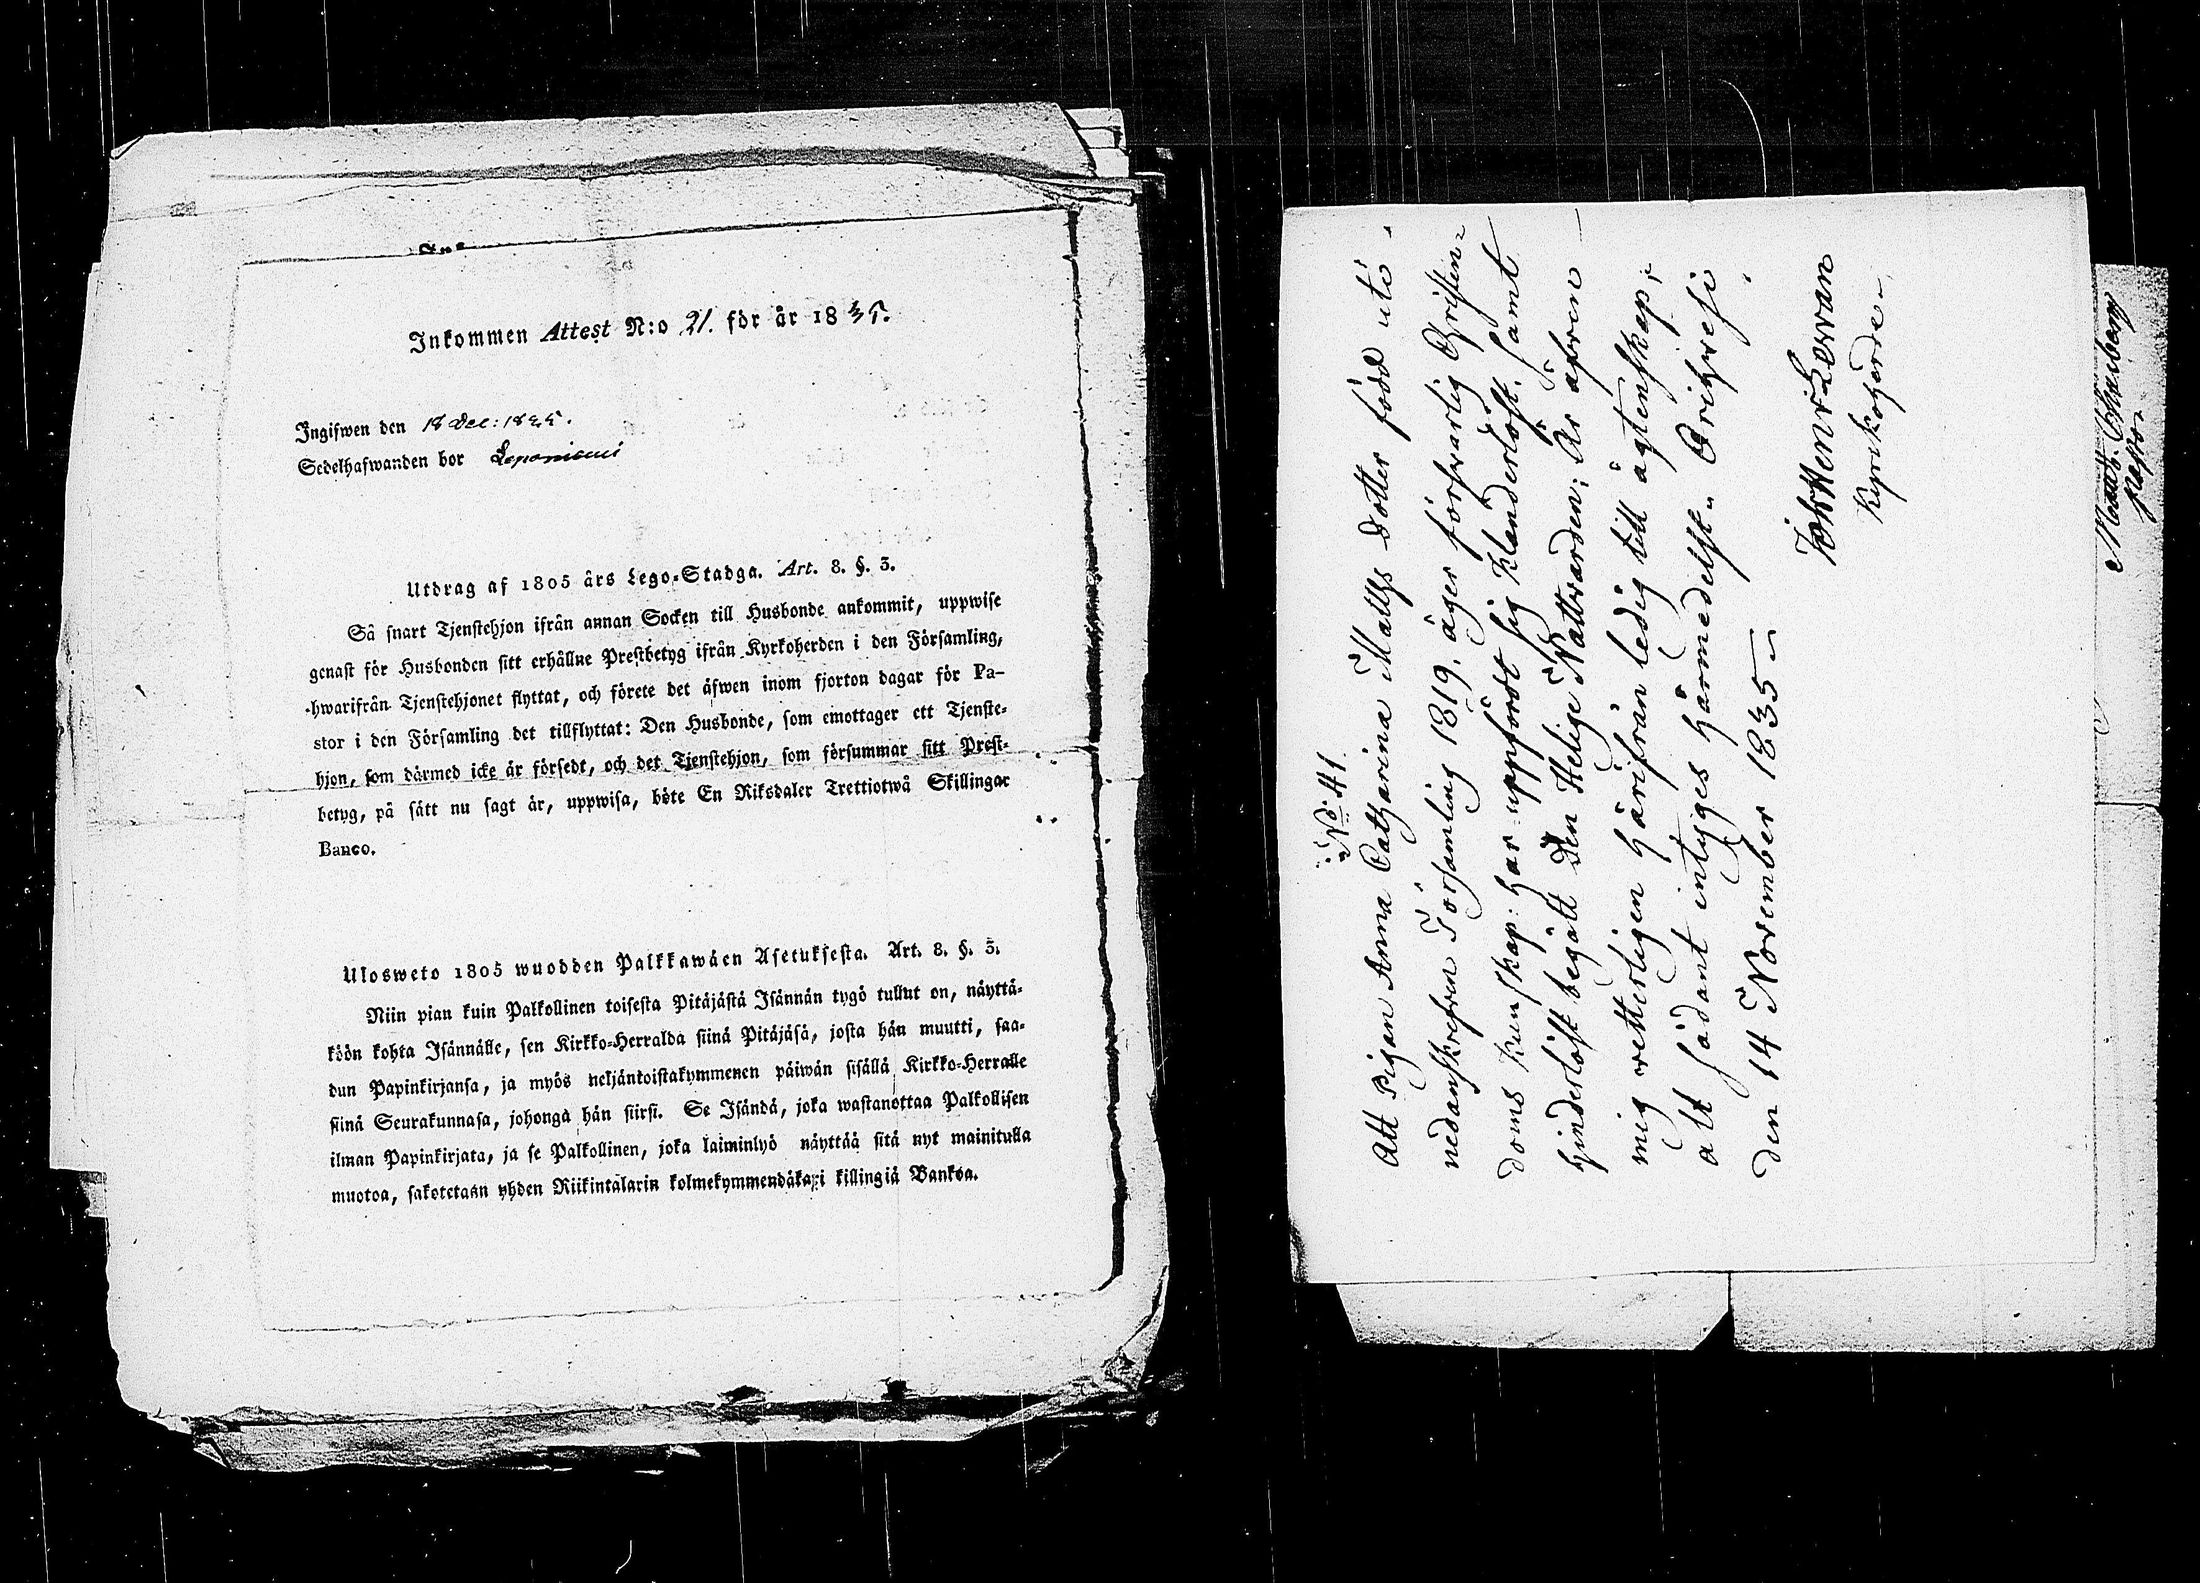 Inkommen Attest N:o 21. för år 1835.
Ingifwen den 18 Dec: 1835.
Sedelhafwanden bor Leponiemi
Utdrag af 1805 års Lego-Stadga. Art. 8. §. 3.
Så snart Tjenstehjon ifrån annan Socken till Husbonde ankommit, uppwise
genast för Husbonden sitt erhållne Prestbetyg ifrån Kyrkoherden i den Församling,
hwarifrån Tjenstehjonet flyttat, och förete det äfwen inom fjorton dagar för Pa-
stor i den Församling det tillflyttat: Den Husbonde, som emottager ett Tjenste-
hjon, som därmed icke är försedt, och det Tjenstehjon, som försummar sitt Prest-
betyg, på sätt nu sagt är, uppwisa, böte En Riksdaler Trettiotwå Skillingar
Banco.
Ulosweto 1805 wuodden Palkkawäen Asetuksesta. Art. 8. §. 3.
Niin pian kuin Palkollinen toisesta Pitäjästä Isännän tygö tullut on, näyttä-
köön kohta Isännälle, sen Kirkko-Herralda siinä Pitäjäsä, josta hän muutti, saa-
dun Papinkirjansa, ja myös neljäntoistakymmenen päiwän sisällä Kirkko-Herralle
siinä Seurakunnasa, johonga hän siirsi. Se Isändä, joka wastanottaa Palkollisen
ilman Papinkirjata, ja se Palkollinen, joka laiminlyö näyttää sitä nyt mainitulla
muotoa, sakotetaan yhden Riikintalarin kolmekymmendäkaxi killingiä Bankoa.
N:o 41.
Att Pigan Anna Catharina Matts dotter född uti
nedanskrefven Församling 1819. äger försvarlig Christen-
doms kunskap: har uppfördt sig klanderlöst, samt
hinderlöst begått den Helige Nattvarden; Är äfven
mig vetterligen härifrån ledig till ägtenskap;
att sådant intyges härmedelst. Orihvesi
den 14 November 1835
Joh: Henr: Levan
Kyrkoherde
Matth.
Pastor